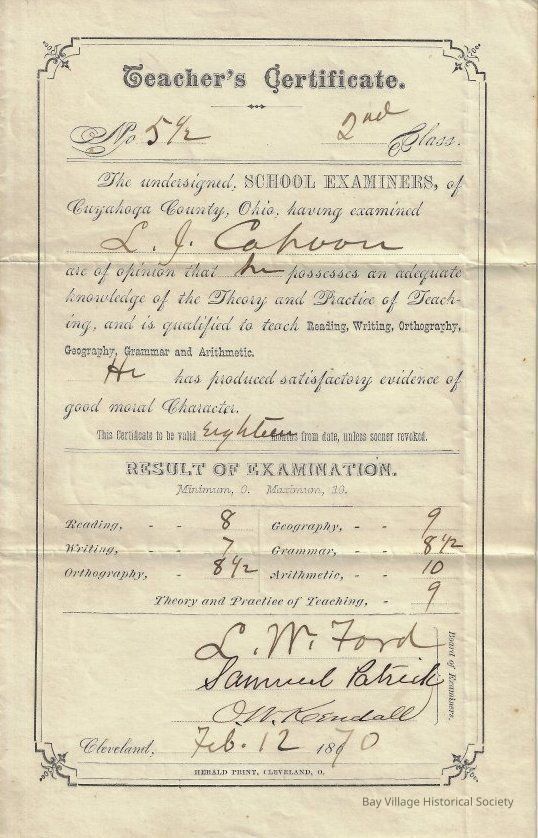 Teacher's Certificate.
No 5 1/2 2nd Class.
The undersigned, SCHOOL EXAMINERS, of
Cuyahoga County, Ohio, having examined
L. J. Cahoon
are of opinion that he possesses an adequate
knowledge of the Theory and Practice of Teach-
ing, and is qualified to teach Reading, Writing, Orthography,
Geography, Grammar and Arithmetic.
He has produced satisfactory evidence of
good moral Character.
This Certificate to be valid Eighteen months from date, unless sooner revoked.
RESULT OF EXAMINATION.
Minimum, 0. Maximum, 10.
Reading, - - 8 Geography, - - 9
Writing, - - 7 Grammar, - - 8 1/2
Orthography, - 8 1/2 Arithmetic, - - 10
Theory and Practice of Teaching, - 9
L. W. Ford
Samuel Patrick
O. W. Kendall
Board of Examiners.
Cleveland, Feb. 12 1870
HERALD PRINT, CLEVELAND, O.
Bay Village Historical Society